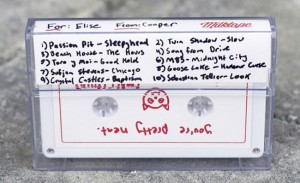 For: Elise From: Cooper Milktape
1) Passion Pit - Sleepyhead 2) Twin Shadow - Slow
3) Beach House - The Hours 4) Song from Drive
5) Toro y Moi - Good Hold 6) M83 - Midnight City
7) Sufjan Stevens - Chicago 8) Goose Lake - Harbour
9) Crystal Castles - Baptism 10) Sebastien Tellier - Look
you're pretty neat.